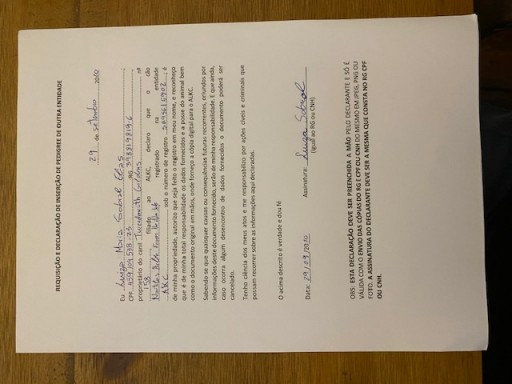 REQUISIÇÃO E DECLARAÇÃO DE INSERÇÃO DE PEDIGREE DE OUTRA ENTIDADE
29 de setembro 2020
Eu Luiza Maria Sobral
CPF RG
proprietário do canil of
filiado ao ALKC, declaro que o cão
registrado na entidade
AKC sob o número de registro , é
de minha propriedade, autorizo que seja feito o registro em meu nome, e reconheço
que é de minha total responsabilidade os dados fornecidos e a posse do animal bem
como o documento original em mãos, onde forneço a cópia digital para o ALKC.
Sabendo-se que quaisquer causas ou consequências futuras recorrentes, oriundos por
informações deste documento fornecidos, serão de minha responsabilidade. E que ainda,
caso ocorra algum desencontro de dados fornecidos o documento poderá ser
cancelado.
Tenho ciência dos meus atos e me responsabilizo por ações cíveis e criminais que
possam recorrer sobre as informações aqui declaradas.
O acima descrito é verdade e dou fé
Data: 29/09/2020 Assinatura: Luiza Sobral
(Igual ao RG ou CNH)
OBS: ESTA DECLARAÇÃO DEVE SER PREENCHIDA A MÃO PELO DECLARANTE E SÓ É
VÁLIDA COM O ENVIO DAS CÓPIAS DO RG E CPF OU CNH DO MESMO EM JPEG, PNG OU
FOTO. A ASSINATURA DO DECLARANTE DEVE SER A MESMA QUE CONSTA NO RG CPF
OU CNH.